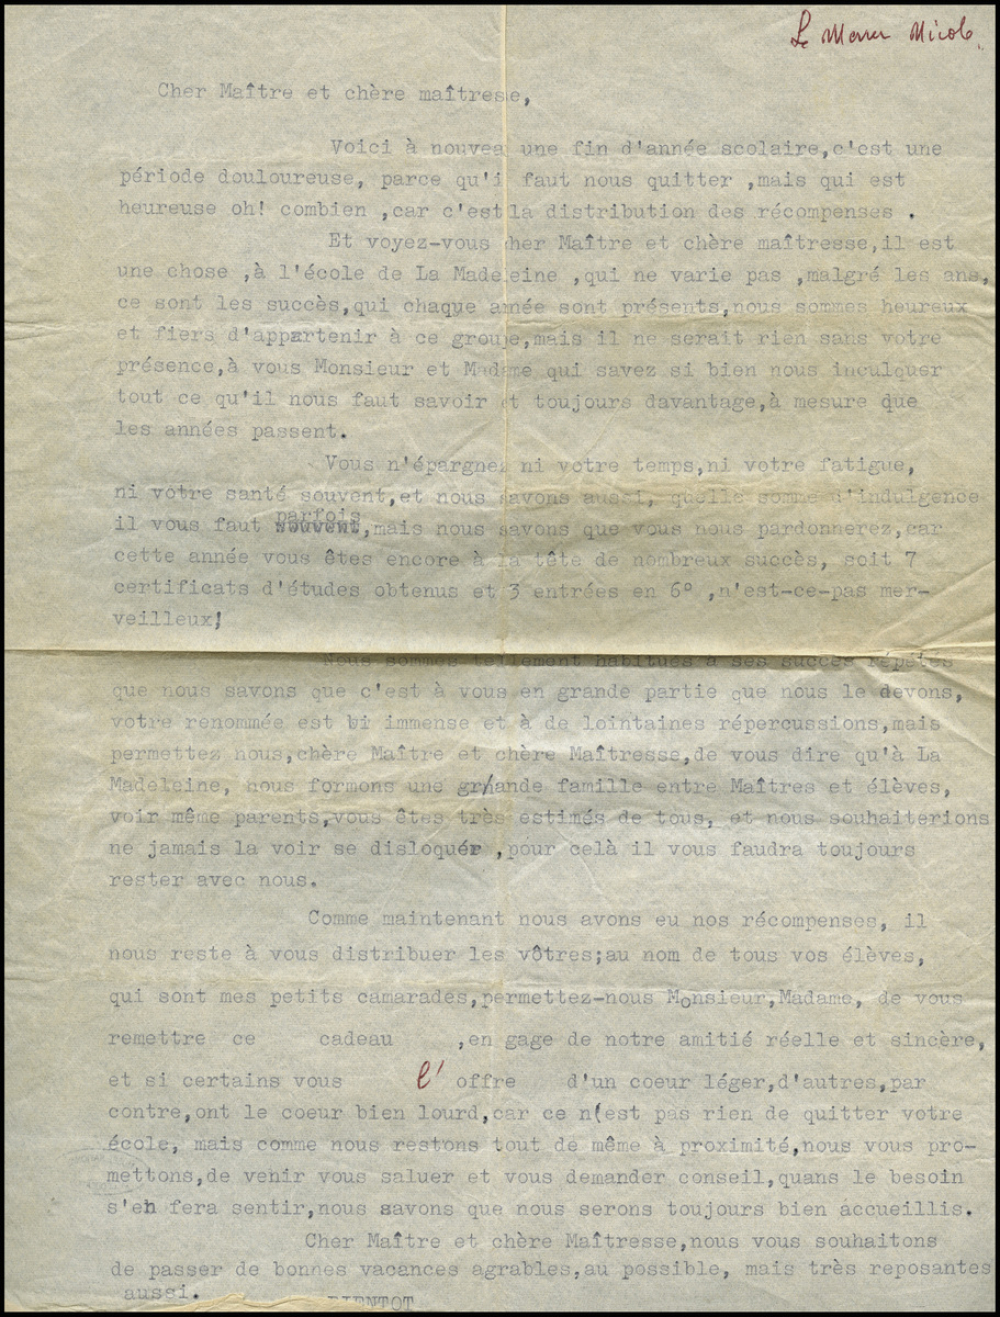 Le Merrer Nicole.
Cher Maître et chère maîtresse,
Voici à nouvea une fin d'année scolaire,c'est une
période douloureuse, parce qu'i faut nous quitter ,mais qui est
heureuse oh! combien ,car c'est la distribution des récompenses .
Et voyez-vous cher Maître et chère maîtresse,il est
une chose ,à l'école de La Madeleine ,qui ne varie pas ,malgré les ans,
ce sont les succès,qui chaque année sont présents,nous sommes heureux
et fiers d'appartenir à ce groupe,mais il ne serait rien sans votre
présence,à vous Monsieur et Madame qui savez si bien nous inculquer
tout ce qu'il nous faut savoir et toujours davantage,à mesure que
les années passent.
Vous n'épargnez ni votre temps,ni votre fatigue,
ni votre santé souvent,et nous savons aussi, quelle somme d'indulgence
parfois
il vous faut souvent,mais nous savons que vous nous pardonnerez,car
cette année vous êtes encore à la tête de nombreux succès, soit 7
certificats d'études obtenus et 3 entrées en 6° ,n'est-ce-pas mer-
veilleux!
Nous sommes tellement habitués à ses succès répétés
que nous savons que c'est à vous en grande partie que nous le devons,
votre renommée est si immense et à de lointaines répercussions,mais
permettez nous,chère Maître et chère Maîtresse,de vous dire qu'à La
Madeleine, nous formons une grande famille entre Maîtres et élèves,
voir même parents,vous êtes très estimés de tous, et nous souhaiterions
ne jamais la voir se disloquér ,pour celà il vous faudra toujours
rester avec nous.
Comme maintenant nous avons eu nos récompenses, il
nous reste à vous distribuer les vôtres;au nom de tous vos élèves,
qui sont mes petits camarades,permettez-nous Monsieur,Madame, de vous
remettre ce cadeau ,en gage de notre amitié réelle et sincère,
et si certains vous l' offre d'un coeur léger,d'autres,par
contre,ont le coeur bien lourd,car ce n(est pas rien de quitter votre
école, mais comme nous restons tout de même à proximité,nous vous pro-
mettons,de venir vous saluer et vous demander conseil,quans le besoin
s'en fera sentir,nous savons que nous serons toujours bien accueillis.
Cher Maître et chère Maîtresse,nous vous souhaitons
de passer de bonnes vacances agrables,au possible, mais très reposantes
aussi.
BIENTOT